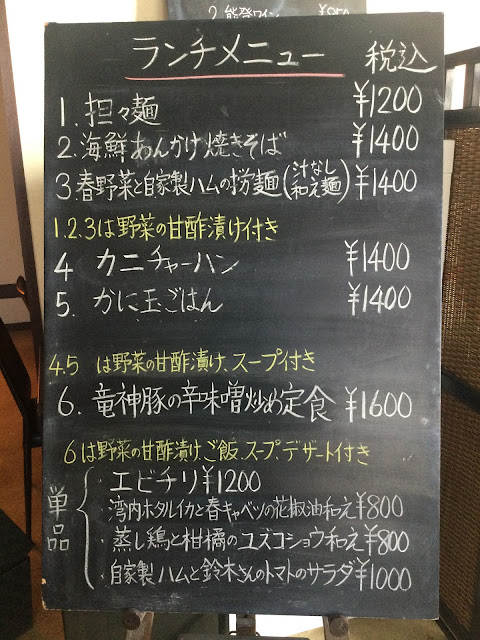 2. 能登ワイン ¥850
ランチメニュー 税込
1. 担々麺 ¥1200
2. 海鮮あんかけ焼きそば ¥1400
3. 春野菜と自家製ハムの拌麺(汁なし和え麺) ¥1400
1.2.3は野菜の甘酢漬け付き
4 カニチャーハン ¥1400
5. かに玉ごはん ¥1400
4.5 は野菜の甘酢漬け、スープ付き
6. 竜神豚の辛味噌炒め定食 ¥1600
6は野菜の甘酢漬け、ご飯、スープ、デザート付き
単品
・エビチリ ¥1200
・湾内ホタルイカと春キャベツの花椒油和え ¥800
・蒸し鶏と柑橘のユズコショウ和え ¥800
・自家製ハムと鈴木さんのトマトのサラダ ¥1000